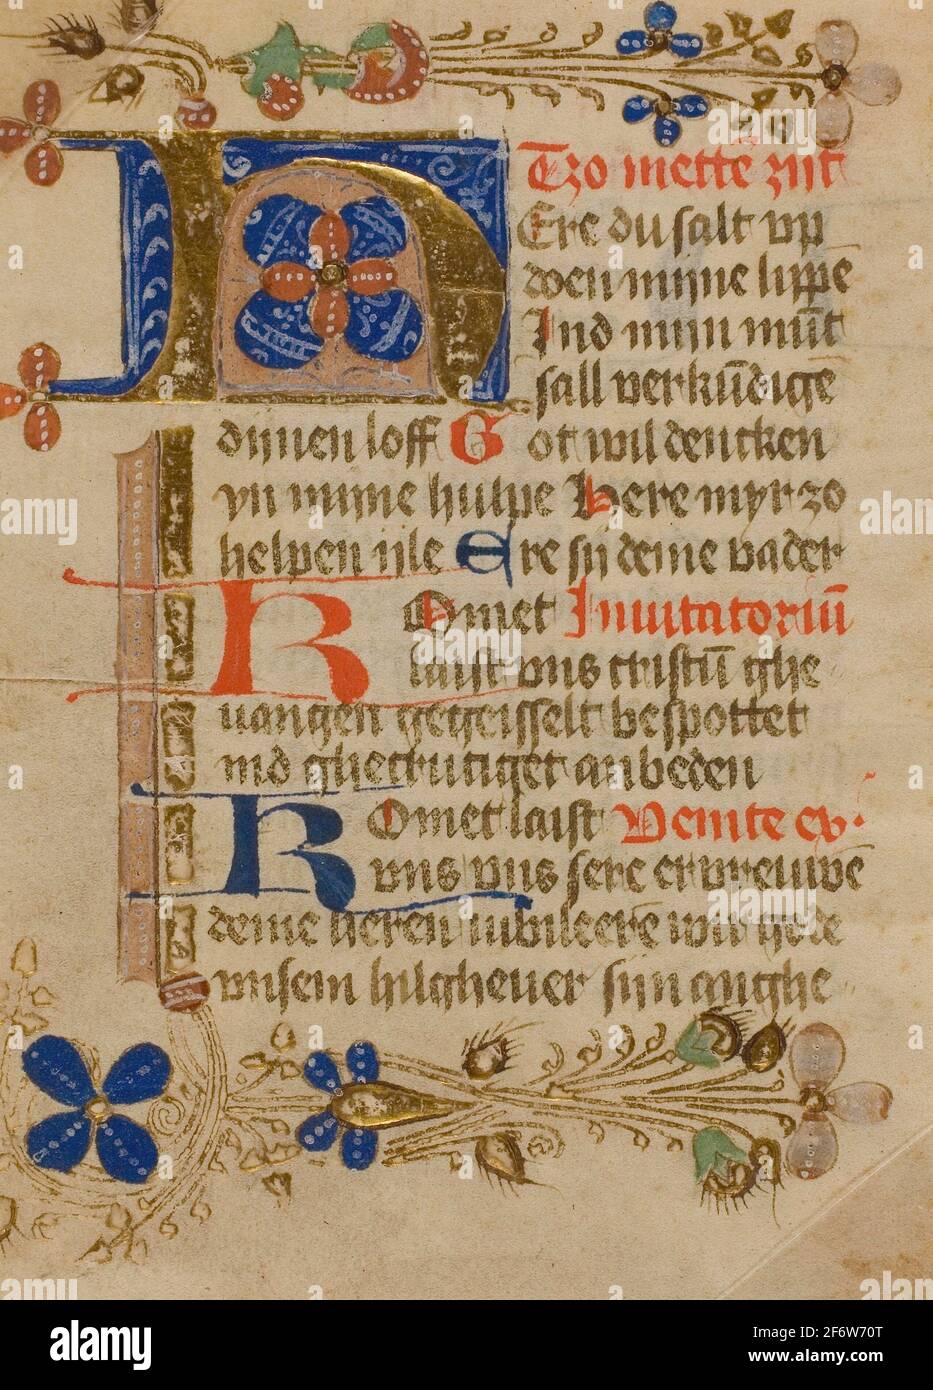 Tzo mettē zijt
HEre du salt vp
doen mijne lippe
Ind mijn mūt
sall verkūdige
dijnen loff Got wil dencken
yn mijne hulpe Here myr zo
helpen ijle Ere sij deme vader
KOmet Inuitatoriū
laist vns cristū ghe
uangen gegeisselt bespottet
ind ghecrutiget anbeden
KOmet laist Venite ex.
vns vns sere ervreuwe
deme heren iubileere wir gode
vnsem hilgheuer sijn anghe
a alamy
Image ID: 2F6W70T
www.alamy.com